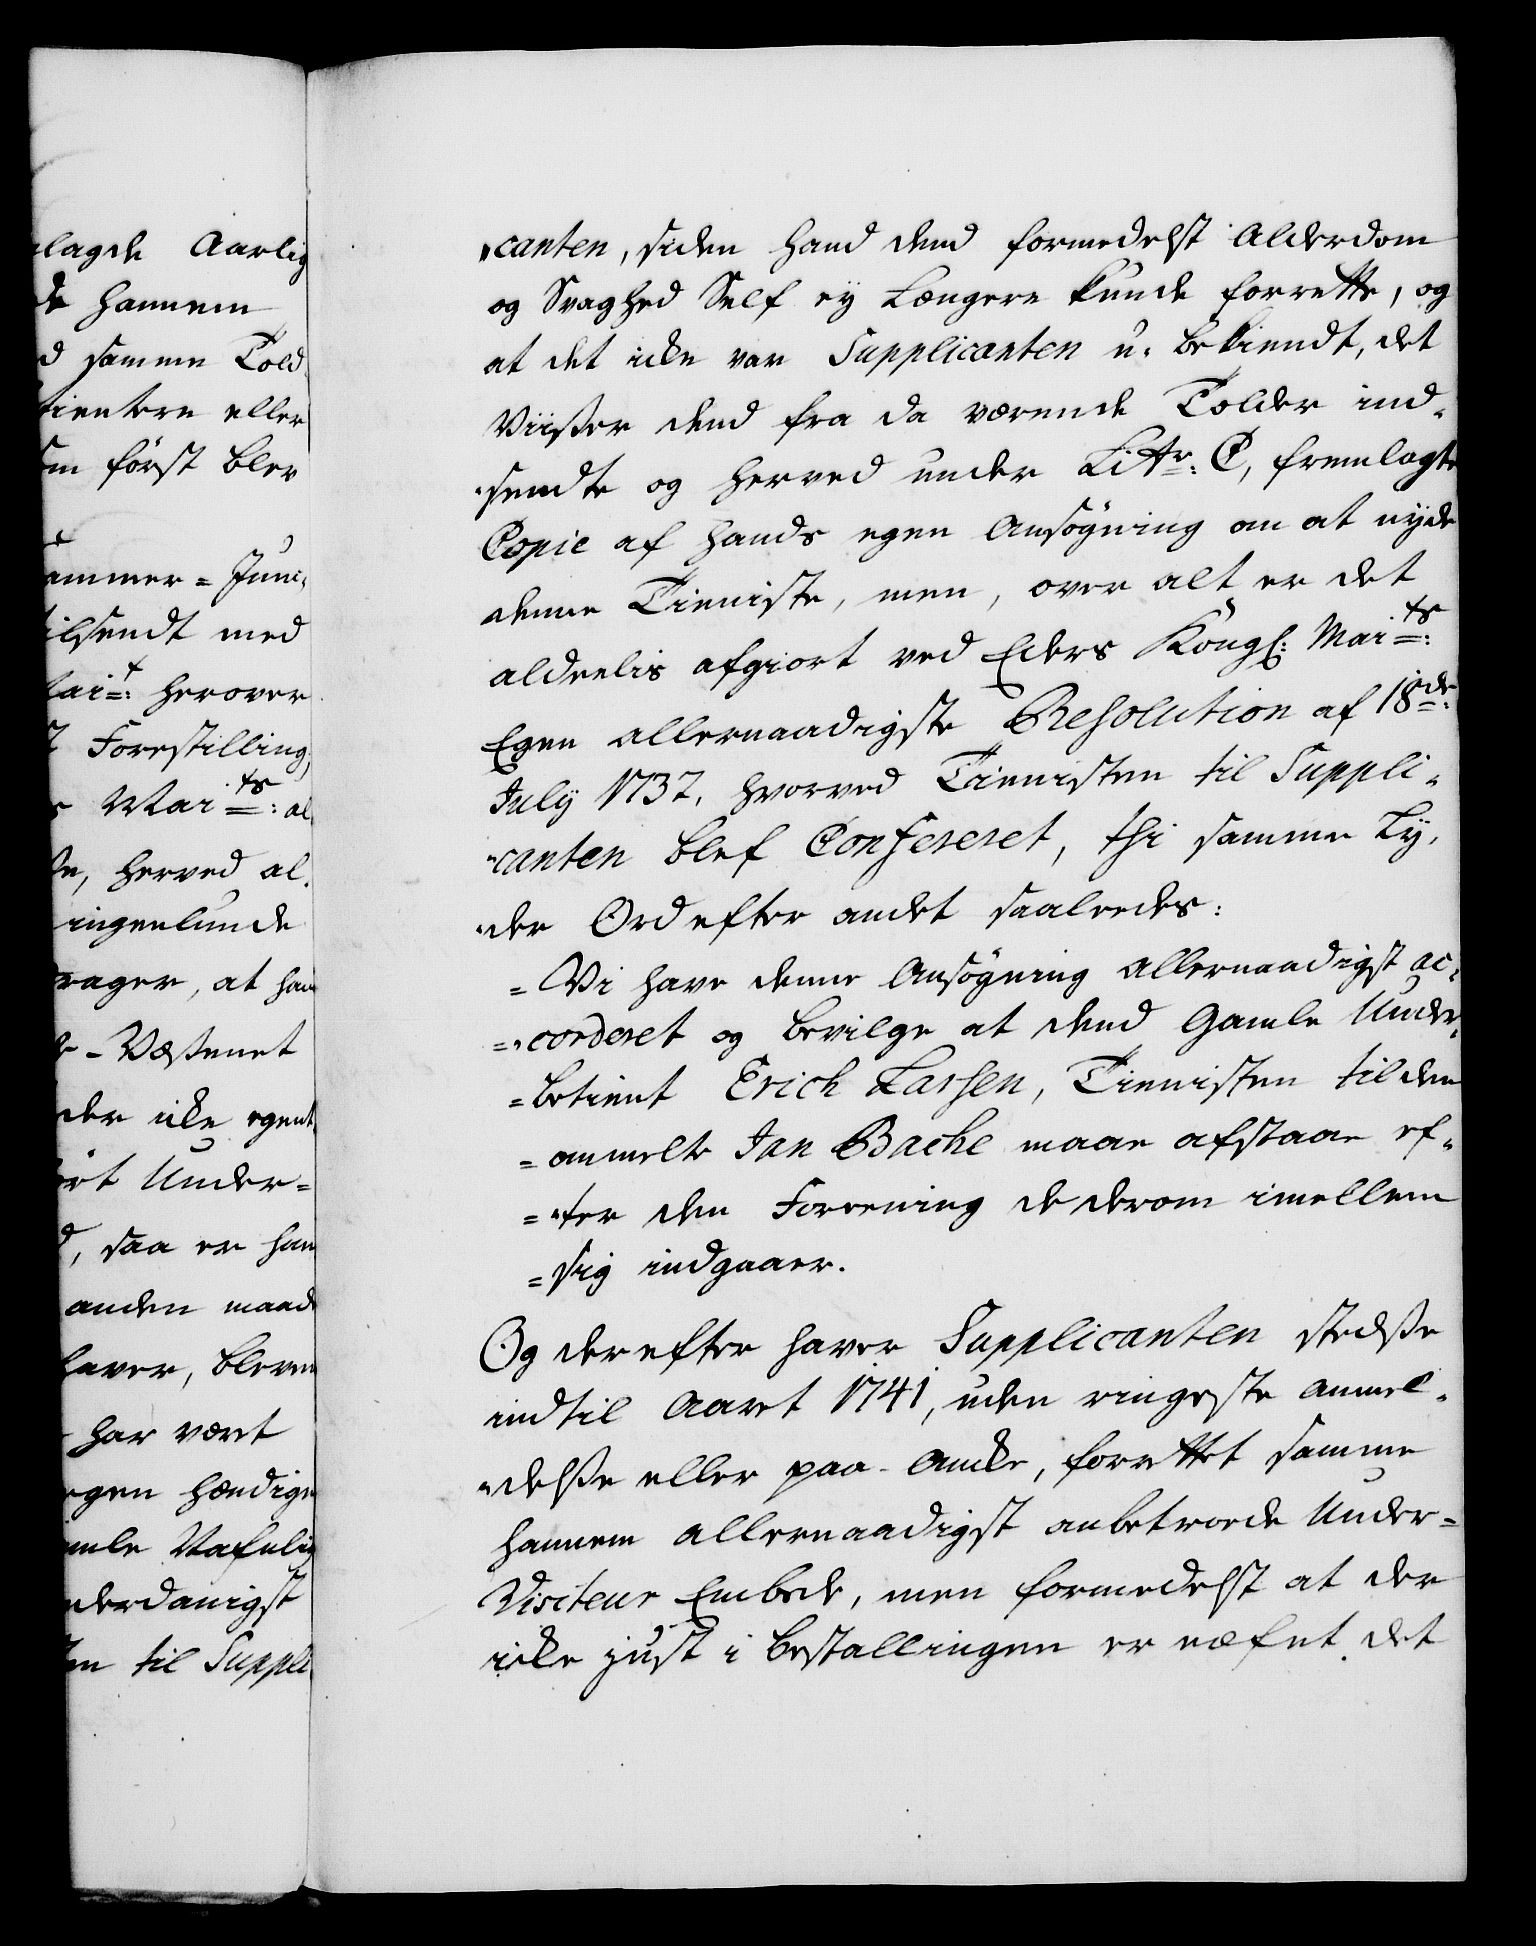 lagde Aarlig
de hannem
d samme Told
tientere eller
om först blev
ammer = Juni,
ilsendt med
Mai:t: herover
t Forestilling,
s Mai:ts: al
ße, herved al,
ingenlunde
rager, at han
e - Væßenet
der icke egent,
ört Under=
d, saa er han
anden maade
haver, bleven
har vært
egen hændige
amle
nderdanigst
en til Suppli
canten, siden hand dend formedelst Alderdom
og Svaghed Self ey Længere kunde forrette, og
at det icke var Supplicanten u-bekiendt, det
Viißer dend fra da værende Tolder ind-
sendte og herved under Littr: C, fremlagte
Copie af hands egen Ansögning om at nyde
denne Tieniste, men, over alt er det
aldeelis afgiort ved Eders Kongl: Mai:ts:
Egen allernaadigste Resolution af 18de:
July 1737, hvorved Tienisten til Suppli-
canten blef Confereret, thi samme Ly,
der Ord efter andet saaleedes:
= Vi have denne Ansögning allernaadigst ac-
= corderet og bevilge at dend Gamle Under-
= betient Erich Larsen, Tienisten til den
= anmelte Jan Bache maae afstaae ef-
= ter den Foreening de derom imellem
= sig indgaaer.
Og derefter haver Supplicanten stedße
indtil Aaret 1741, uden ringeste Anmel-
delße eller paa-Ancke, forrettet samme
hannem allernaadigst anbetroede Under=
Visiteur Embede, men formedelst at der
icke just i bestallingen er næfnt det